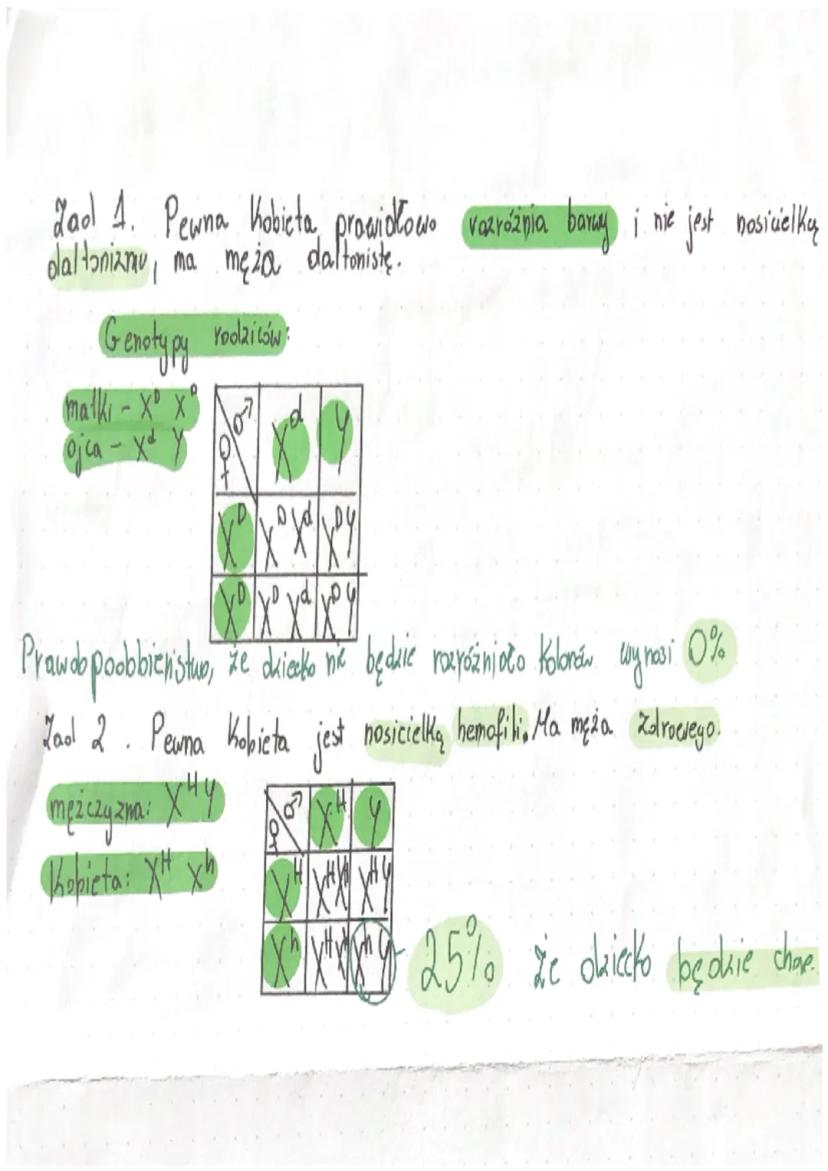 Zad 1. Pewna kobieta prawidłowo rozróżnia barwy i nie jest nosicielką
daltonizmu, ma męża daltonistę.
Genotypy rodziców:
matki - X^D X^D
ojca - X^d Y
♀ ♂ X^d Y
X^D X^D X^d X^D Y
X^D X^D X^d X^D Y
Prawdopoobbieństwo, że dziecko nie będzie rozróżniało kolorów wynosi 0%
Zad 2. Pewna kobieta jest nosicielką hemofili. Ma męża zdrowego.
mężczyzna: X^H Y
Kobieta: X^H X^h
♀ ♂ X^H Y
X^H X^H X^H X^H Y
X^h X^H X^h X^h Y
25% że dziecko będzie chore.